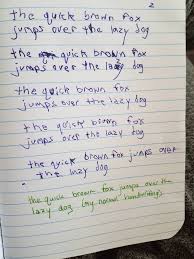 2
the quick brown fox
jumps over the lazy dog
the quick brown fox
jumps over the lazy dog
the quick brown fox
jumps over the lazy dog
the quick brown fox
jumps over the lazy dog
the quick brown fox jumps over
the lazy dog
the quick brown fox jumps over the
lazy dog (my normal handwriting)